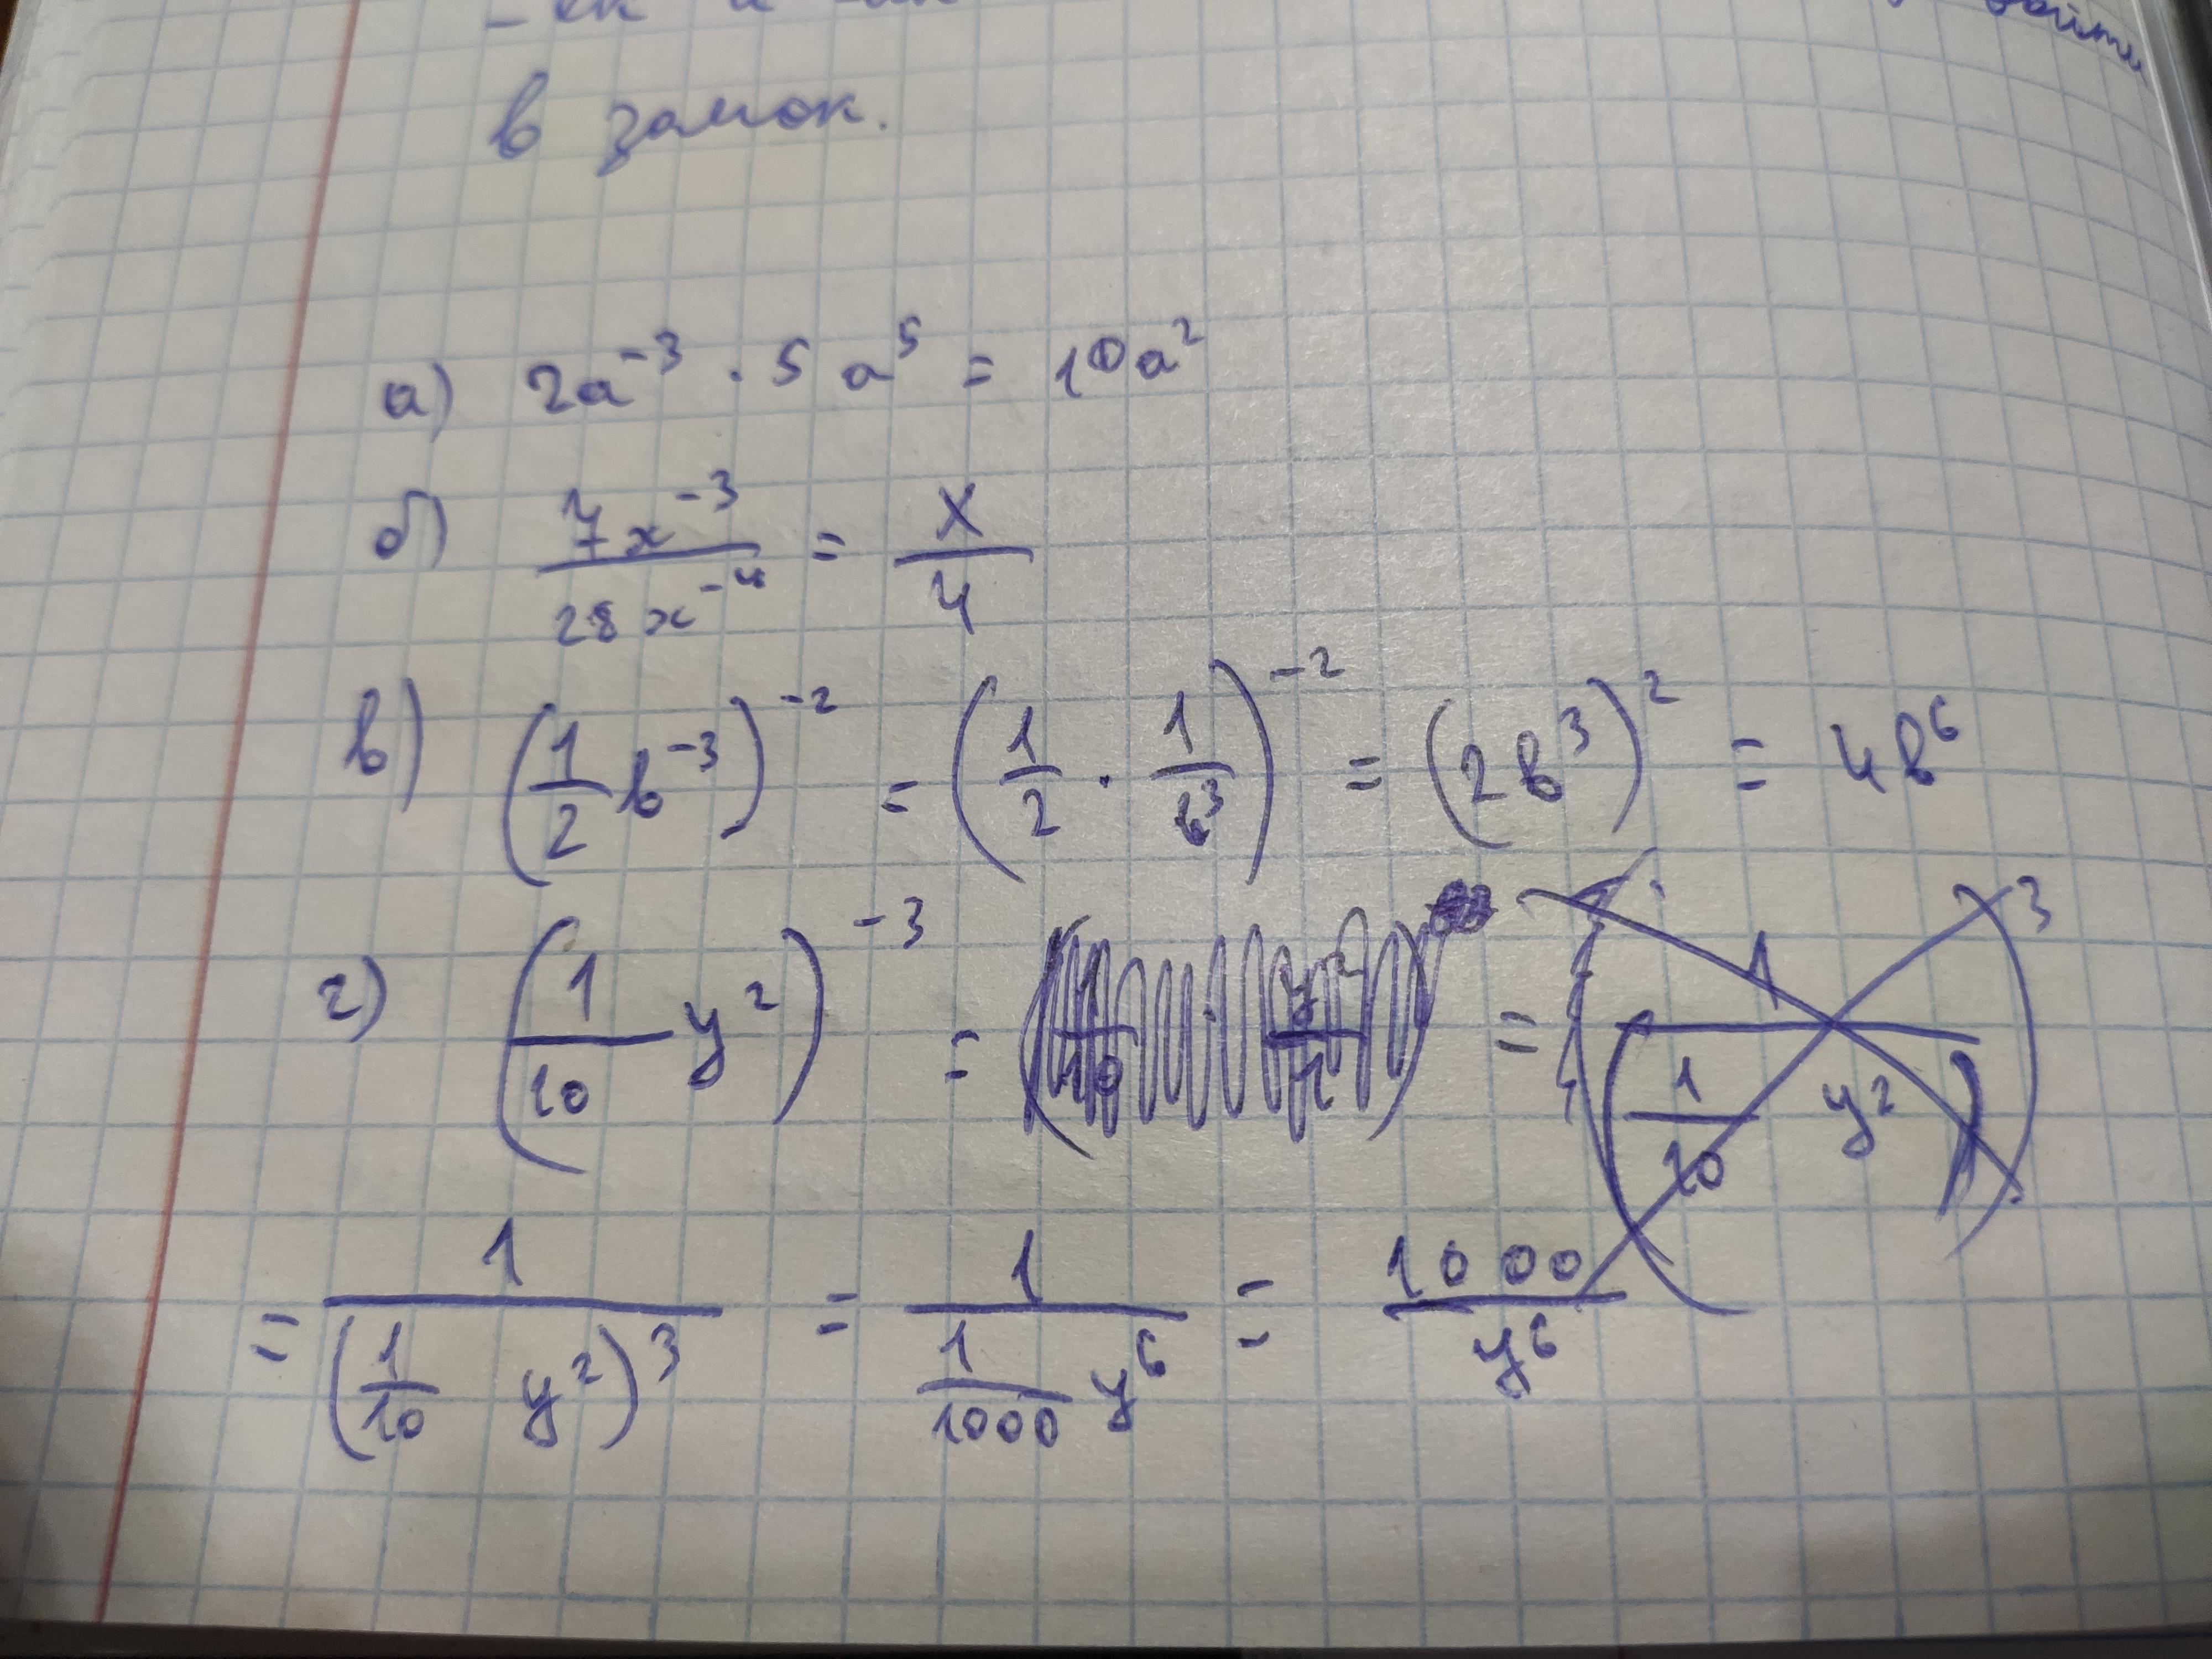 в замок.
а) 2a⁻³ · 5 a⁵ = 10a²
б) 7x⁻³ / 28x⁻⁴ = x / 4
в) (1/2 b⁻³)⁻² = (1/2 · 1/b³)⁻² = (2b³)² = 4b⁶
г) (1/10 y²)⁻³ = = (1 / (1/10 y²))³
= 1 / (1/10 y²)³ = 1 / (1/1000 y⁶) = 1000 / y⁶